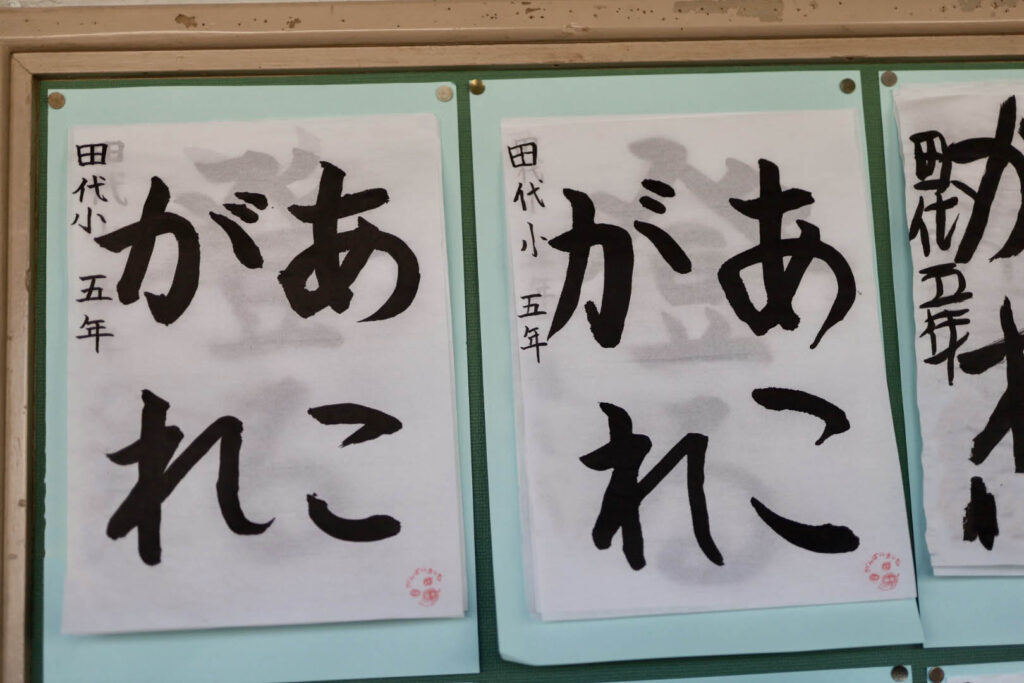 あこ
がれ
田代小 五年
あこ
がれ
田代小 五年
が
れ
田代 五年